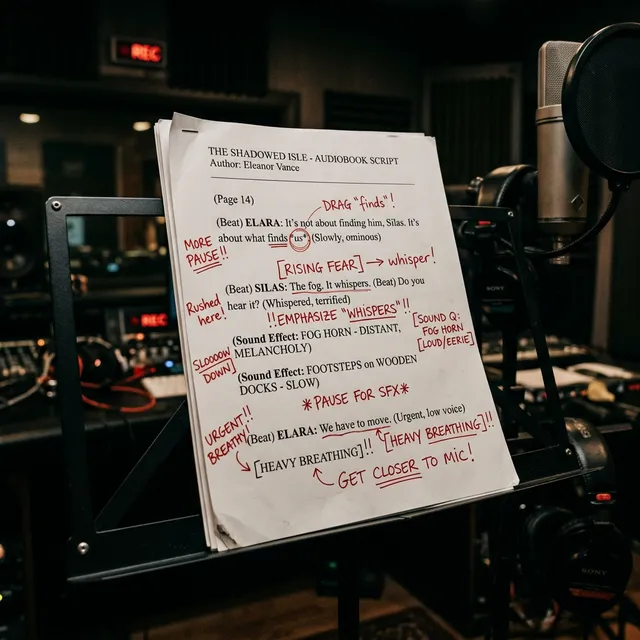 REC
THE SHADOWED ISLE - AUDIOBOOK SCRIPT
Author: Eleanor Vance
(Page 14)
DRAG "finds"!
(Beat) ELARA: It's not about finding him, Silas. It's
about what finds *us* (Slowly, ominous)
MORE
PAUSE!!
[RISING FEAR] → whisper!
(Beat) SILAS: The fog. It whispers. (Beat) Do you
hear it? (Whispered, terrified)
Rushed
here!
!!EMPHASIZE "WHISPERS"!!
[SOUND Q:
FOG HORN
[LOUD/EERIE]
REC
(Sound Effect: FOG HORN - DISTANT,
MELANCHOLY)
SLOOOOW
DOWN]
(Sound Effect: FOOTSTEPS on WOODEN
DOCKS - SLOW)
*PAUSE FOR SFX*
URGENT!!
BREATHY
(Beat) ELARA: We have to move. (Urgent, low voice)
[HEAVY BREATHING]!!
[HEAVY BREATHING]!!
GET CLOSER TO MIC!
SONY
SONY